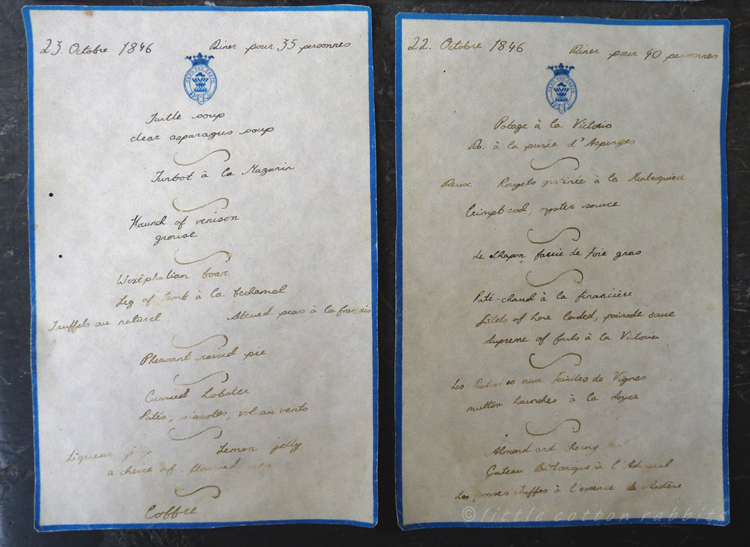 23. Octobre 1846 Diner pour 35 personnes
Turtle soup
clear asparagus soup
Turbot à la Mazarin
Haund of venison
grouse
Westphalian boar
Leg of lamb à la bechamel
Truffels au naturel Stewed peas à la francais
Pheasant raised pie
Curried Lobster
Patés, rissoles, vol au vents
Liqueur jelly Lemon jelly
a choice of flavored
Coffee
22. Octobre 1846 Diner pour 40 personnes
Potage à la Victoria
Do. à la purée d'Asperges
Deux Rougets à la Montesquieu
Crimpt cod, oyster sauce
Le Chapon farcie de foie gras
Paté-chaud à la financière
Filets of Hare larded, poivrade sauce
Supreme of fouls à la Victoria
Les aux Feuilles de Vignes
mutton haunches à la
Almond and cherry
Gateau à l'Admiral
Les Truffes à l'essence de Madère
© little cotton rabbits